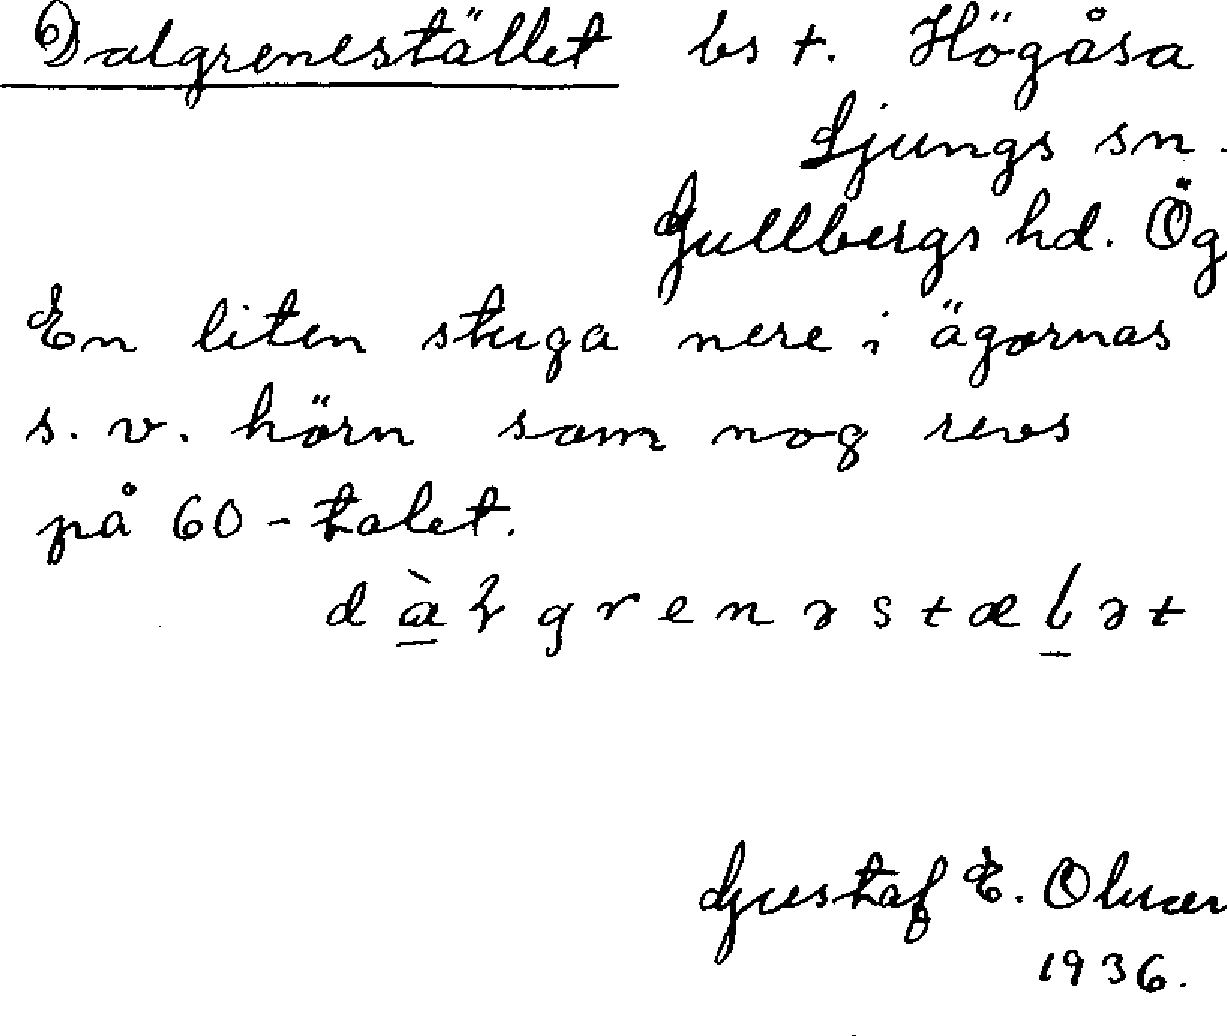 Dalgrenestället bs t. Högåsa
Ljungs sn.
Gullbergs hd. Ög
En liten stuga nere i ägornas
s. v. hörn som nog revs
på 60-talet.
Gustaf E.
1936.